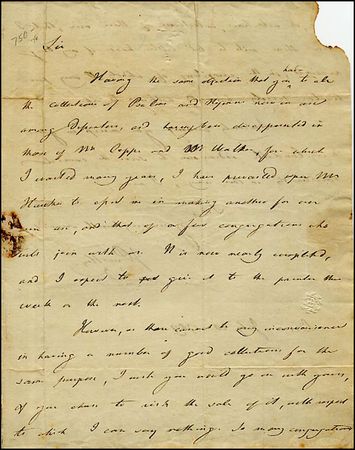 750
Sir
Having the same objection that you have to all
the collections of Psalms and Hymns now in use
among Dissenters, and having been disappointed in
those of Mr and Mr Walker, for which
I waited many years, I have prevailed upon Mr
Hawkes to assist me in making another for our
own use, and that of a few congregations who
will join with us. It is now nearly completed,
and I expect to give it to the printer this
week or the next.
However, as there cannot be any inconvenience
in having a number of good collections for the
same purpose, I wish you would go on with yours,
if you chuse to risk the sale of it, with respect
to which I can say nothing. So many congregations